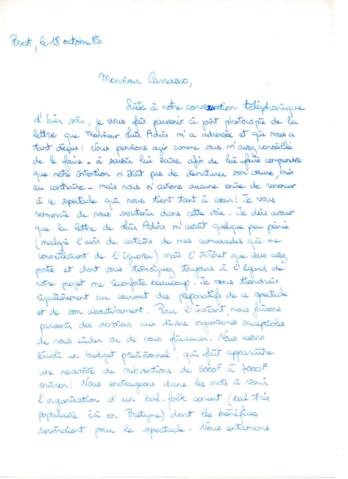 Brest, le 18 octobre 85
Monsieur Carrasco,
Suite à notre conversation téléphonique
d'hier soir, je vous fais parvenir ci joint photocopie de la
lettre que Monsieur Luis Adiris m'a adressée et qui nous a
tant déçus. Nous pensions agir comme vous m'avez conseillé
de le faire - à savoir lui écrire afin de lui faire comprendre
que notre intention n'était pas de dénaturer son œuvre, bien
au contraire - mais nous n'avons aucune envie de renoncer
à ce spectacle qui nous tient tant à cœur! Je vous
remercie de nous soutenir dans cette voie. Je dois avouer
que la lettre de Luis m'avait quelque peu peinée
(malgré l'avis de certains de mes camarades qui me
conseillaient de l'ignorer) mais l'intérêt que vous avez
porté et dont vous témoignez toujours à l'égard de
notre projet me réconforte beaucoup. Je vous tiendrai
régulièrement au courant des préparatifs de ce spectacle
et de son aboutissement. Pour l'instant nous faisons
parvenir des dossiers aux divers organismes susceptibles
de nous aider ou de nous financer. Nous avons
établi un budget prévisionnel qui fait apparaître
une nécessité de subventions de 5000F à 7000F
environ. Nous envisageons dans les mois à venir
l'organisation d'un bal-folk concert (bal très
populaire ici en Bretagne) dont les bénéfices
serviraient pour le spectacle. Nous entamons